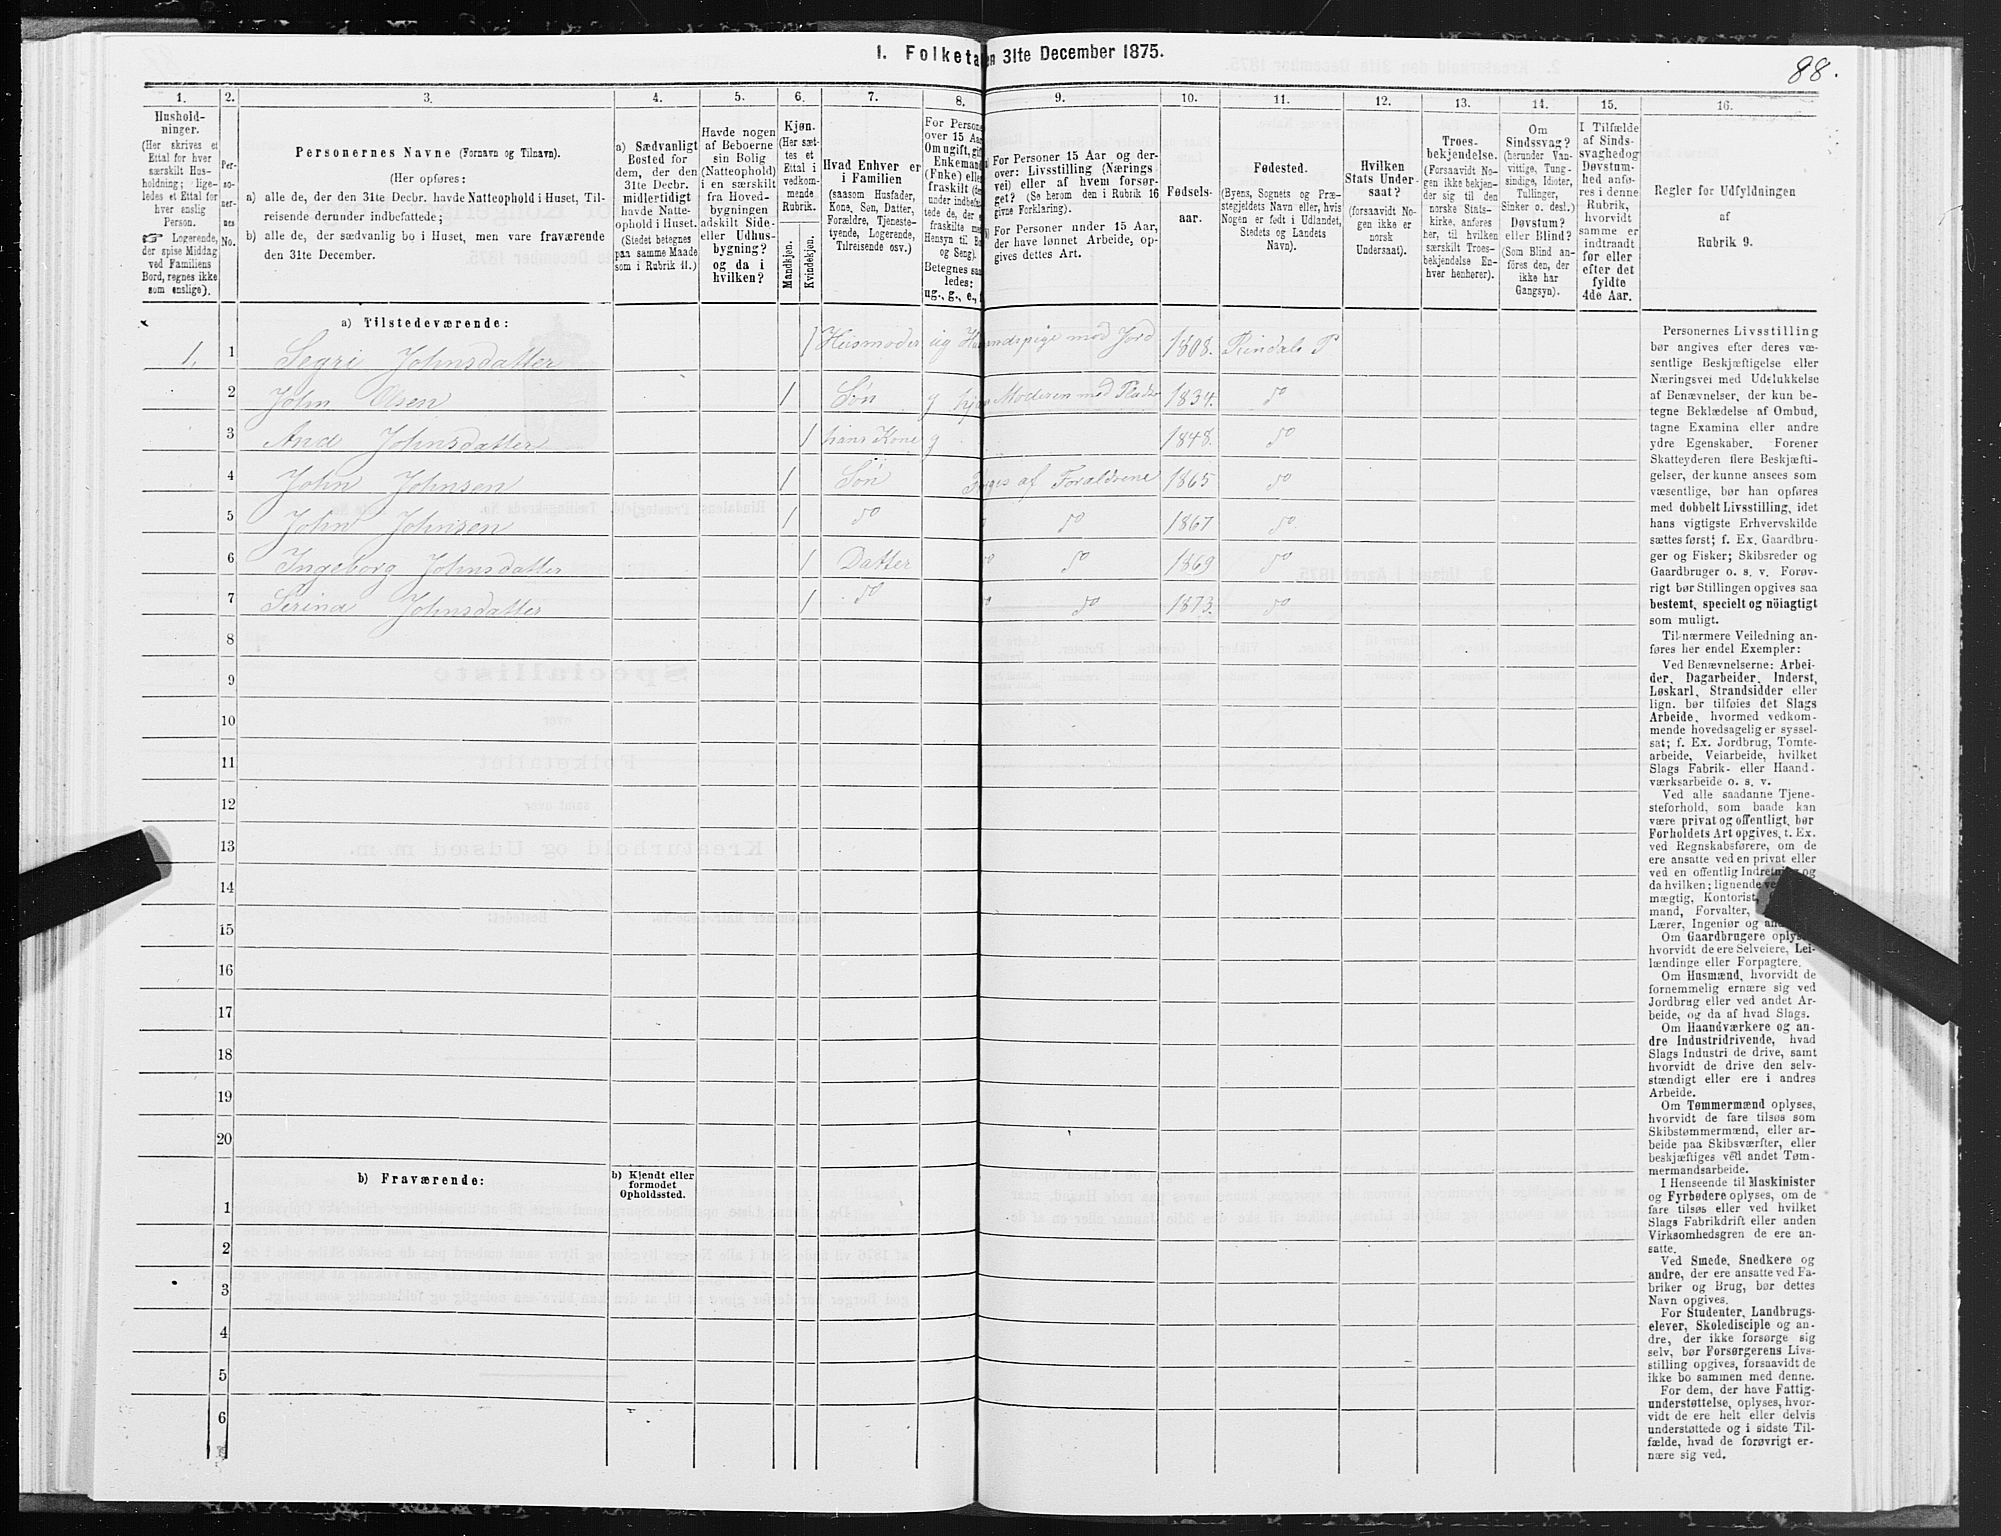 1. Folketa en 31te December 1875.
88.
1. 2. 3. 4. 5. 6. 7. 8. 9. 10. 11. 12. 13. 14. 15. 16.
Hushold-
ninger.
(Her skrives et
Ettal for hver
særskilt Hus-
holdning; lige-
ledes et Ettal for
hver enslig
Person.
☞ Logerende,
der spise Middag
ved Familiens
Bord, regnes ikke
som enslige).
Per-
so-
ner-
nes
No.
Personernes Navne (Fornavn og Tilnavn).
(Her opføres:
a) alle de, der den 31te Decbr. havde Natteophold i Huset, Til-
reisende derunder indbefattede;
b) alle de, der sædvanlig bo i Huset, men vare fraværende
den 31te December.
a) Sædvanligt
Bosted for
dem, der den
31te Decbr.
midlertidigt
havde Natte-
ophold i Huset.
(Stedet betegnes
paa samme Maade
som i Rubrik 11.)
Havde nogen
af Beboerne
sin Bolig
(Natteophold)
i en særskilt
fra Hoved-
bygningen
adskilt Side-
eller Udhus-
bygning?
og da i
hvilken?
Kjøn.
(Her sæt-
tes et
Ettal i
vedkom-
mende
Rubrik.
Mandkjøn.
Kvindekjøn.
Hvad Enhver er
i Familien
(saasom Husfader,
Kone, Søn, Datter,
Forældre, Tjeneste-
tyende, Logerende,
Tilreisende osv.)
For Persone
over 15 Aa
Om ugift, gif
Enkeman
(Enke) elle
fraskilt (de
under indbefa
tede de, der e
fraskilte me
Hensyn til Bo
og Seng).
Betegnes saa
ledes:
ug., g., e.,
For Personer 15 Aar og der-
over: Livsstilling (Nærings
vei) eller af hvem forsør-
get? (Se herom den i Rubrik 16
givne Forklaring).
For Personer under 15 Aar,
der have lønnet Arbeide, op-
gives dettes Art.
Fødsels-
aar.
Fødested.
(Byens, Sognets og Præ-
stegjeldets Navn eller, hvis
Nogen er født i Udlandet,
Stedets og Landets
Navn).
Hvilken
Stats Under-
saat?
(forsaavidt No-
gen ikke er
norsk
Undersaat).
Troes-
bekjendelse.
(Forsaavidt No-
gen ikke bekjen-
der sig til den
norske Stats-
kirke, anføres
her, til hvilken
særskilt Troes-
bekjendelse En-
hver henhører).
Om
Sindssvag?
(herunder Van-
vittige, Tung-
sindige, Idioter,
Tullinger,
Sinker o. desl.)
Døvstum?
eller Blind?
(Som Blind an-
føres den, der
ikke har
Gangsyn).
I Tilfælde
af Sinds-
svaghed og
Døvstum-
hed anfø-
res i denne
Rubrik,
hvorvidt
samme er
indtraadt
før eller
efter det
fyldte
4de Aar.
Regler for Udfyldningen
af
Rubrik 9.
a) Tilstedeværende:
1. 1 Segri Johnsdatter 1 Husmoder ug Husmandspige med Jord 1808. Rindals P
2 John Olsen 1 Søn g Moderen med Pladsen 1834. do
3 Ane Johnsdatter 1 hans Kone g 1848. do
4 John Johnsen 1 Søn af Foraldrene 1865 do
5 John Johnsen 1 do do 1867 do
6 Ingeborg Johnsdatter 1 Datter do 1869 do
7 Serina Johnsdatter 1 do do 1873. do
8
9
10
11
12
13
14
15
16
17
18
19
20
b) Fraværende:
b) Kjendt eller
formodet
Opholdssted.
1
2
3
4
5
6
Personernes Livsstilling
bør angives efter deres væ-
sentlige Beskjæftigelse eller
Næringsvei med Udelukkelse
af Benævnelser, der kun be-
tegne Beklædelse af Ombud,
tagne Examina eller andre
ydre Egenskaber. Forener
Skatteyderen flere Beskjæfti-
gelser, der kunne ansees som
væsentlige, bør han opføres
med dobbelt Livsstilling, idet
hans vigtigste Erhvervskilde
sættes først; f. Ex. Gaardbru-
ger og Fisker; Skibsreder og
Gaardbruger o. s. v. Forøv-
rigt bør Stillingen opgives saa
bestemt, specielt og nöiagtigt
som muligt.
Til nærmere Veiledning an-
føres her endel Exempler:
Ved Benævnelserne: Arbei-
der, Dagarbeider, Inderst,
Løskarl, Strandsidder eller
lign. bør tilføies det Slags
Arbeide, hvormed vedkom-
mende hovedsagelig er syssel-
sat; f. Ex. Jordbrug, Tomte-
arbeide, Veiarbeide, hvilket
Slags Fabrik- eller Haand-
værksarbeide o. s. v.
Ved alle saadanne Tjene-
steforhold, som baade kan
være privat og offentligt, bør
Forholdets Art opgives, t. Ex.
ved Regnskabsførere, om de
ere ansatte ved en privat eller
ved en offentlig Indretning og
da hvilken; lignende ve
mægtig, Kontorist,
mand, Forvalter,
Lærer, Ingeniør og an
Om Gaardbrugere oplyse
hvorvidt de ere Selveiere, Lei-
lændinge eller Forpagtere.
Om Husmænd, hvorvidt de
fornemmelig ernære sig ved
Jordbrug eller ved andet Ar-
beide, og da af hvad Slags.
Om Haandværkere og an-
dre Industridrivende, hvad
Slags Industri de drive, samt
hvorvidt de drive den selv-
stændigt eller ere i andres
Arbeide.
Om Tømmermænd oplyses,
hvorvidt de fare tilsøs som
Skibstømmermænd, eller ar-
beide paa Skibsværfter, eller
beskjæftiges ved andet Tøm-
mermandsarbeide.
I Henseende til Maskinister
og Fyrbødere oplyses, om de
fare tilsøs eller ved hvilket
Slags Fabrikdrift eller anden
Virksomhedsgren de ere an-
satte.
Ved Smede, Snedkere og
andre, der ere ansatte ved Fa-
briker og Brug, bør dettes
Navn opgives.
For Studenter, Landbrugs-
elever, Skoledisciple og an-
dre, der ikke forsørge sig
selv, bør Forsørgerens Livs-
stilling opgives, forsaavidt de
ikke bo sammen med denne.
For dem, der have Fattig-
understøttelse, oplyses, hvor-
vidt de ere helt eller delvis
understøttede og i sidste Til-
fælde, hvad de forøvrigt er-
nære sig ved.